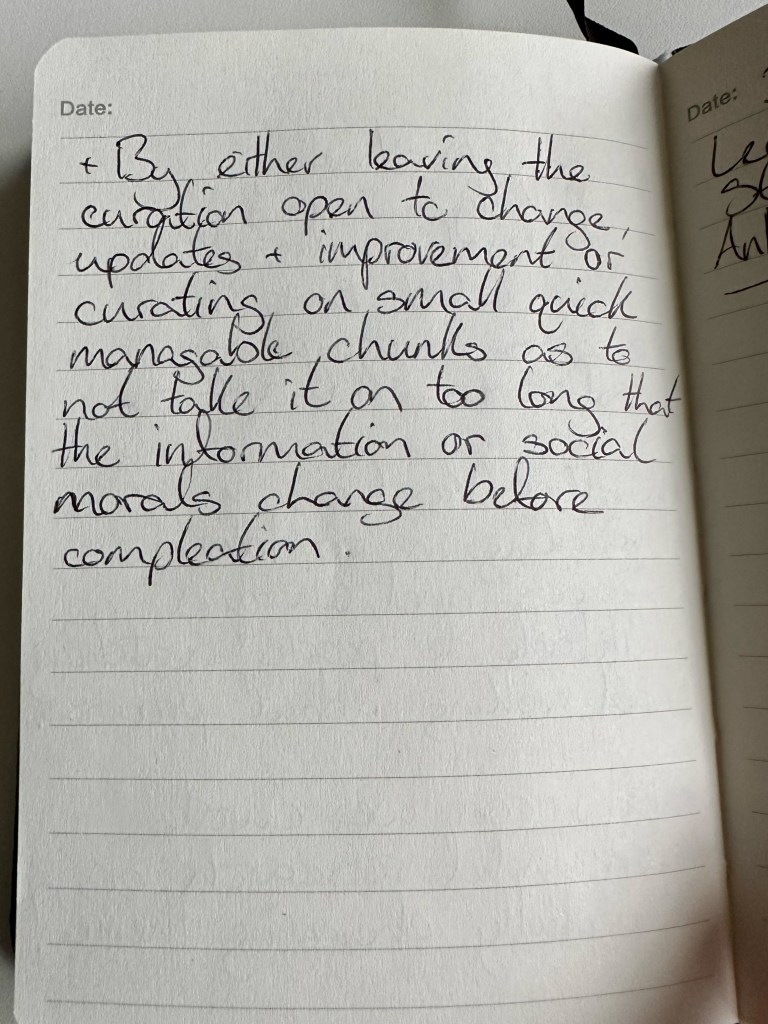 Date:
+ By either leaving the
curation open to change,
updates + improvement or
curating on small quick
managable chunks as to
not take it on too long that
the information or social
morals change before
compleation.
Date: